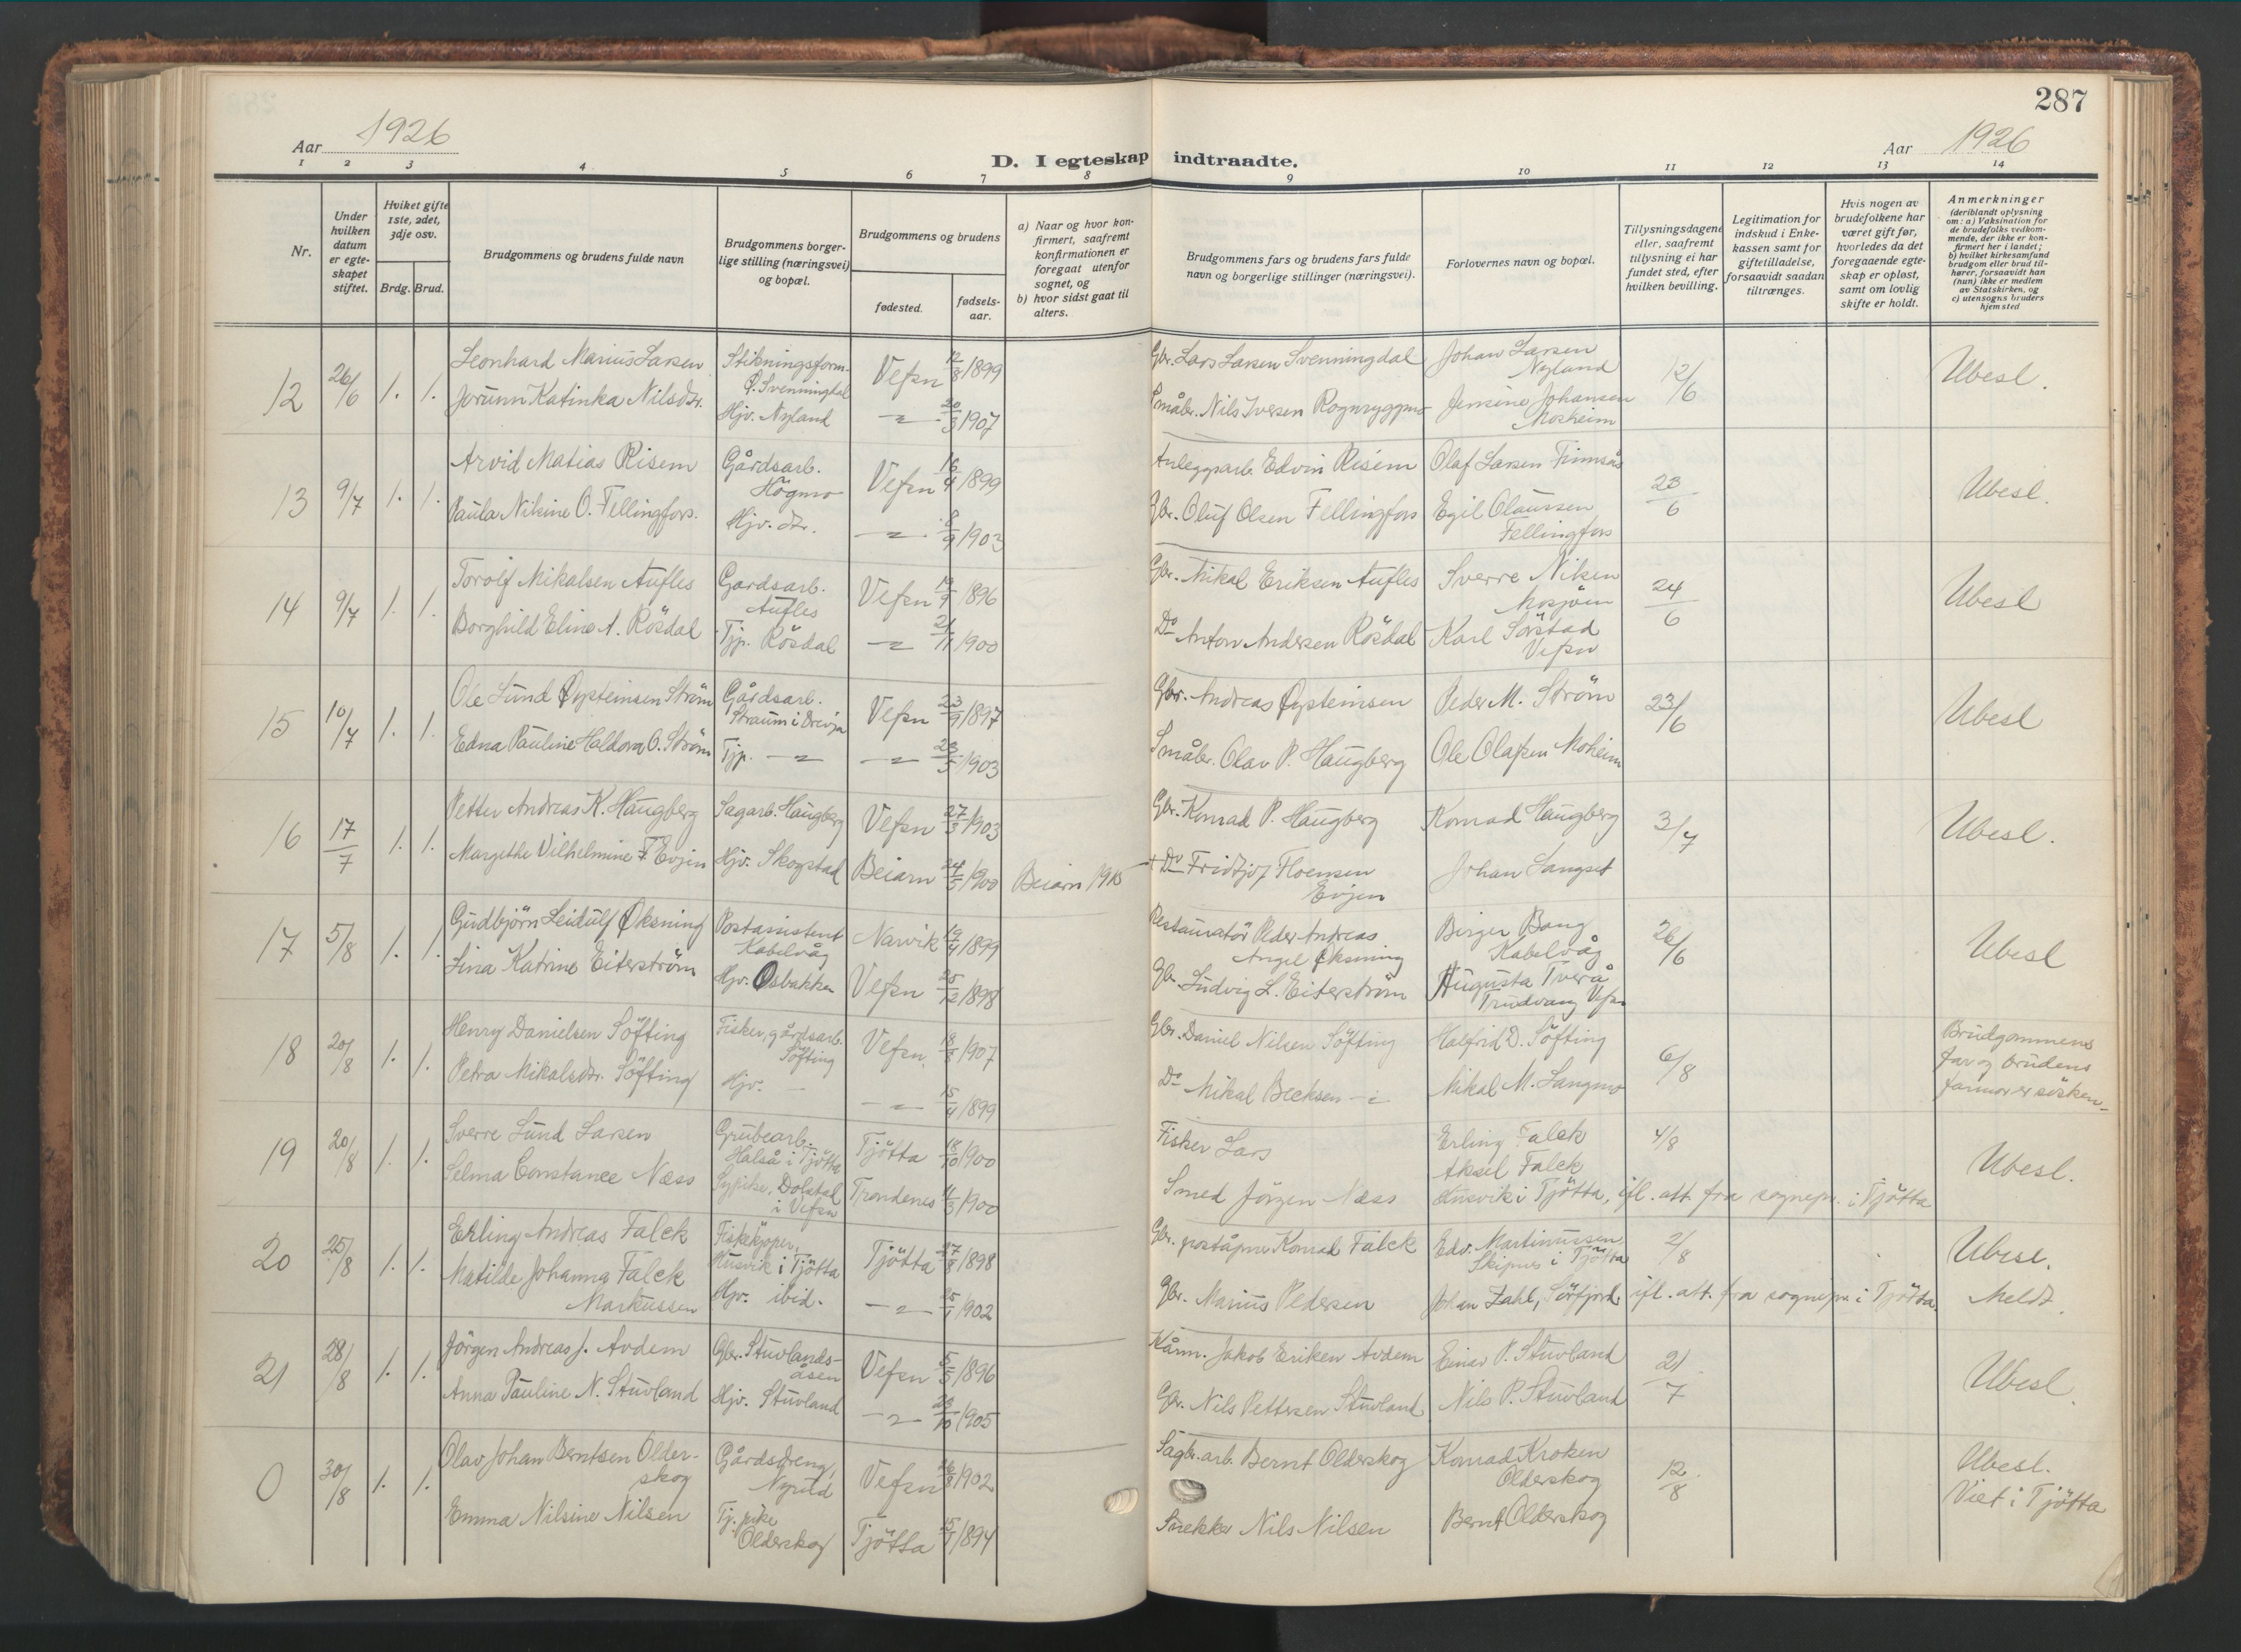 287
Aar 1926
D. I egteskap indtraadte.
Aar 1926
1 2 3 4 5 6 7 8 9 10 11 12 13 14
Nr.
Under hvilken datum er egte-skapet stiftet.
Hviket gifte 1ste, 2det, 3dje osv.
Brdg. Brud.
Brudgommens og brudens fulde navn
Brudgommens borger-lige stilling (næringsvei) og bopæl.
Brudgommens og brudens
fødested. fødsels-aar.
a) Naar og hvor kon-firmert, saafremt konfirmationen er foregaat utenfor sognet, og
b) hvor sidst gaat til alters.
Brudgommens fars og brudens fars fulde navn og borgerlige stillinger (næringsvei).
Forlovernes navn og bopæl.
Tillysningsdagene eller, saafremt tillysning ei har fundet sted, efter hvilken bevilling.
Legitimation for indskud i Enke-kassen samt for giftetilladelse, forsaavidt saadan tiltrænges.
Hvis nogen av brudefolkene har været gift før, hvorledes da det foregaaende egte-skap er opløst, samt om lovlig skifte er holdt.
Anmerkninger
(deriblandt oplysning om: a) Vaksination for de brudefolks vedkom-mende, der ikke er kon-firmert her i landet; b) hvilket kirkesamfund brudgom eller brud til-hører, forsaavidt han (hun) ikke er medlem av Statskirken, og c) utensogns bruders hjemsted
12 26/6 1. 1. Leonhard Marius Larsen Stikningsform. Ø. Svenningdal Vefsn 12/8 1899 Gbr. Lars Larsen Svenningdal Johan Larsen Nyland 12/6 Ubesl.
Jorunn Katinka Nilsdtr. Hjv. Nyland 20/3 1907 Småbr. Nils Iversen Rognryggmo Jensine Johansen Moheim
13 9/7 1. 1. Arvid Matias Risem Gårdsarb. Högmo Vefsn 16/4 1899 Anleggsarb. Edvin Risem Olaf Larsen Finnsås 23/6 Ubesl.
Paula Nikine O. Fellingfors. Hjv. dtr. 8/9 1903 Gbr. Oluf Olsen Fellingfors Egil Olaussen Fellingfors
14 9/7 1. 1. Torolf Mikalsen Aufles Gardsarb. Aufles Vefsn 19/9 1896 Gbr. Mikal Eriksen Aufles Sverre Nilsen Mosjöen 24/6 Ubesl
Borghild Eline A. Rösdal Tjp. Rösdal 21/11 1900 Do Anton Andersen Rösdal Karl Sörstad Vefsn
15 10/7 1. 1. Ole Lund Øysteinsen Ström Gårdsarb. Straum i Drevja Vefsn 23/9 1897 Gbr. Andreas Øysteinsen Peder M. Ström 23/6 Ubesl
Edna Pauline Haldora O. Ström Tjp. 23/5 1903 Småbr. Olav P. Haugberg Ole Olafsen Moheim
16 17/7 1. 1. Petter Andreas K. Haugberg Sagarb. Haugberg Vefsn 27/3 1903 Gbr. Konrad P. Haugberg Konrad Haugberg 3/7 Ubesl.
Margethe Vilhelmine F. Evjen Hjv. Skogstad Beiarn 24/5 1900 Beiarn 1915 + Do Fridtjof Floensen Evjen Johan Langset
17 5/8 1. 1. Gudbjörn Leidulf Øksning Postassistent Kabelvåg Narvik 19/4 1899 Restauratör Peder Andreas Angel Øksning Birger Bang Kabelvåg 26/6 Ubesl
Lina Katrine Eiterström Hjv. Osbakken Vefsn 25/12 1898 Gbr. Ludvig L. Eiterström Augusta Tverå Trudvang Vefsn
18 20/8 1. 1. Henry Danielsen Söfting Fisker, gårdsarb. Söfting Vefsn 18/3 1907 Gbr. Daniel Nilsen Söfting Halfrid D. Söfting 6/8 Brudgommens far og brudens farmor er sösken
Petra Mikalsdtr. Söfting Hjv. 15/4 1899 Do Mikal Becksen Mikal M. Langmo
19 20/8 1. 1. Sverre Lund Larsen Grubearb. Halså i Tjötta Tjötta 18/10 1900 Fisker Lars Erling Falck 4/8 Ubesl.
Selma Constance Næss Sypike, Dolstad i Vefsn Trondenes 11/3 1900 Smed Jörgen Næss Aksel Falck Husvik i Tjötta, ifl. att. fra sognepr. i Tjötta
20 25/8 1. 1. Erling Andreas Falck Fiskekjøper, Husvik i Tjötta Tjötta 27/8 1898 Gbr. poståpner Konrad Falck Edv. Martinussen, Skipnes i Tjötta 2/8 Ubesl.
Matilde Johanna Falck Markussen Hjv. ibid. 25/1 1902 Gbr. Marius Pedersen Johan Zahl, Sörfjord ifl. att. fra sognepr. i Tjötta. Meldt.
21 28/8 1. 1. Jörgen Andreas J. Avdem Gbr. Stuvlands-åsen Vefsn 5/5 1896 Kårm. Jakob Eriksen Avdem Einar P. Stuvland 21/7 Ubesl.
Anna Pauline N. Stuvland Hjv. Stuvland 23/10 1905 Gbr. Nils Pettersen Stuvland Nils P. Stuvland
0 30/8 1. 1. Olav Johan Berntsen Older-skog Gårdsdreng, Nyrud Vefsn 26/8 1902 Sagbr.arb. Bernt Olderskog Konrad Kroken Olderskog 12/8 Ubesl. Viet i Tjötta
Emma Nilsine Nilsen Tj. pike Olderskog Tjötta 15/1 1894 Snekker Nils Nilsen Bernt Olderskog